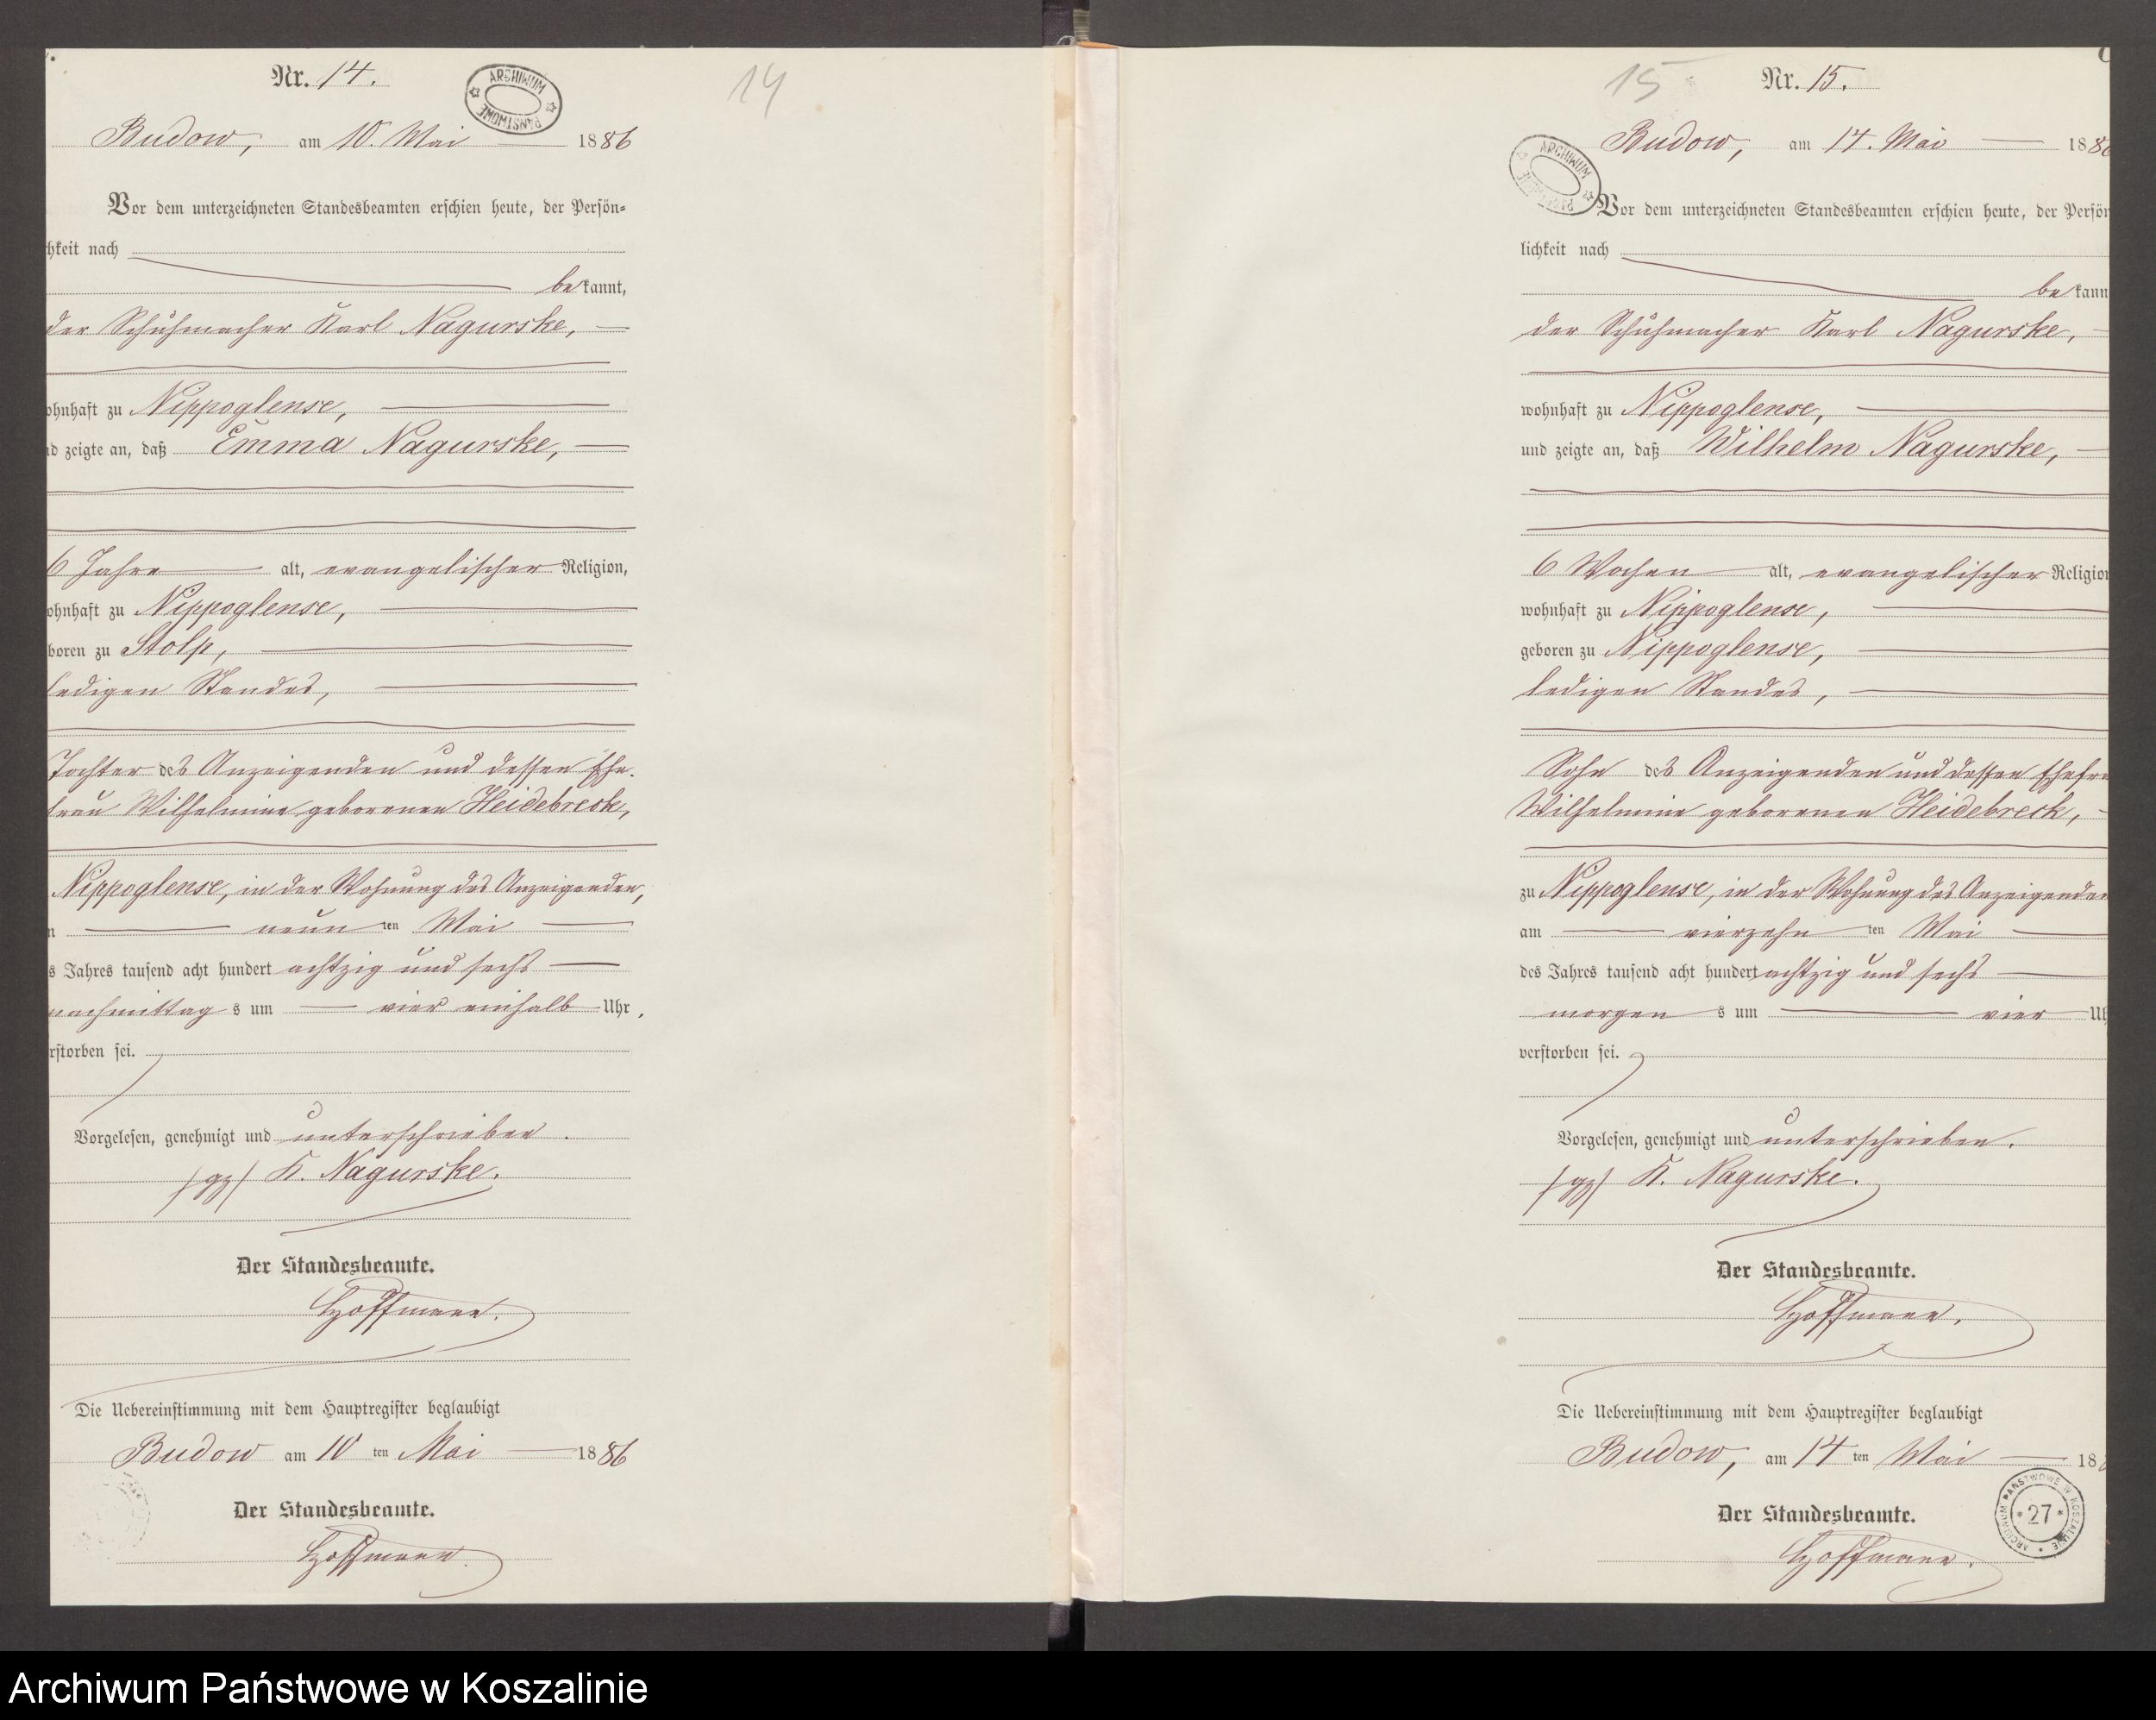 Nr. 14.
ARCHIWUM PAŃSTWOWE
14
Budow, am 10. Mai 1886
Vor dem unterzeichneten Standesbeamten erschien heute, der Persön=
hkeit nach
bekannt,
der Schuhmacher Karl Nagurske,
ohnhaft zu Nippoglense,
nd zeigte an, daß Emma Nagurske,
6 Jahre alt, evangelischer Religion,
ohnhaft zu Nippoglense,
boren zu Stolp,
ledigen Standes,
Tochter des Anzeigenden und dessen Ehe-
frau Wilhelmine geborenen Heidebreck,
Nippoglense, in der Wohnung des Anzeigenden,
neunten Mai
s Jahres tausend acht hundert achtzig und sechs
nachmittags um vier einhalb Uhr,
rstorben sei.
Vorgelesen, genehmigt und unterschrieben.
/gz/ K. Nagurske.
Der Standesbeamte.
Hoffmann.
Die Uebereinstimmung mit dem Hauptregister beglaubigt
Budow am 10ten Mai 1886
Der Standesbeamte.
Hoffmann.
15
Nr. 15.
ARCHIWUM PAŃSTWOWE
Budow, am 14. Mai 188
Vor dem unterzeichneten Standesbeamten erschien heute, der Persön
lichkeit nach
bekann
der Schuhmacher Karl Nagurske,
wohnhaft zu Nippoglense,
und zeigte an, daß Wilhelm Nagurske,
6 Wochen alt, evangelischer Religion
wohnhaft zu Nippoglense,
geboren zu Nippoglense,
ledigen Standes,
Sohn des Anzeigenden und dessen Ehefra
Wilhelmine geborenen Heidebreck,
zu Nippoglense, in der Wohnung des Anzeigenden
am vierzehnten Mai
des Jahres tausend acht hundert achtzig und sechs
morgens um vier Uh
verstorben sei.
Vorgelesen, genehmigt und unterschrieben.
/gz/ K. Nagurske.
Der Standesbeamte.
Hoffmann.
Die Uebereinstimmung mit dem Hauptregister beglaubigt
Budow, am 14ten Mai 18
Der Standesbeamte.
Hoffmann.
ARCHIWUM PAŃSTWOWE W KOSZALINIE * 27 *
Archiwum Państwowe w Koszalinie